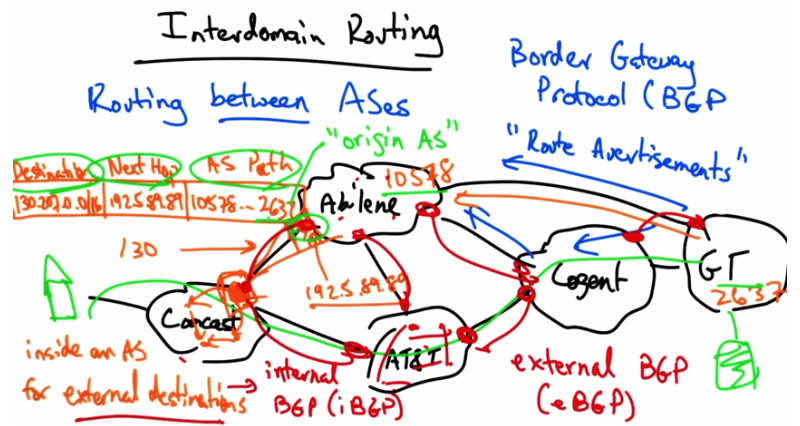 Interdomain Routing
Routing between ASes
Border Gateway
Protocol (BGP
"Route Avertisements"
"origin AS"
Destination Next Hop AS Path
130.207.0.0/16 192.5.89.89 10578...2637
10578
Abilene
130
192.5.89.89
Cogent
GT
2637
Comcast
AT&T
inside an AS
for external destinations
internal
BGP (iBGP)
external BGP
(eBGP)